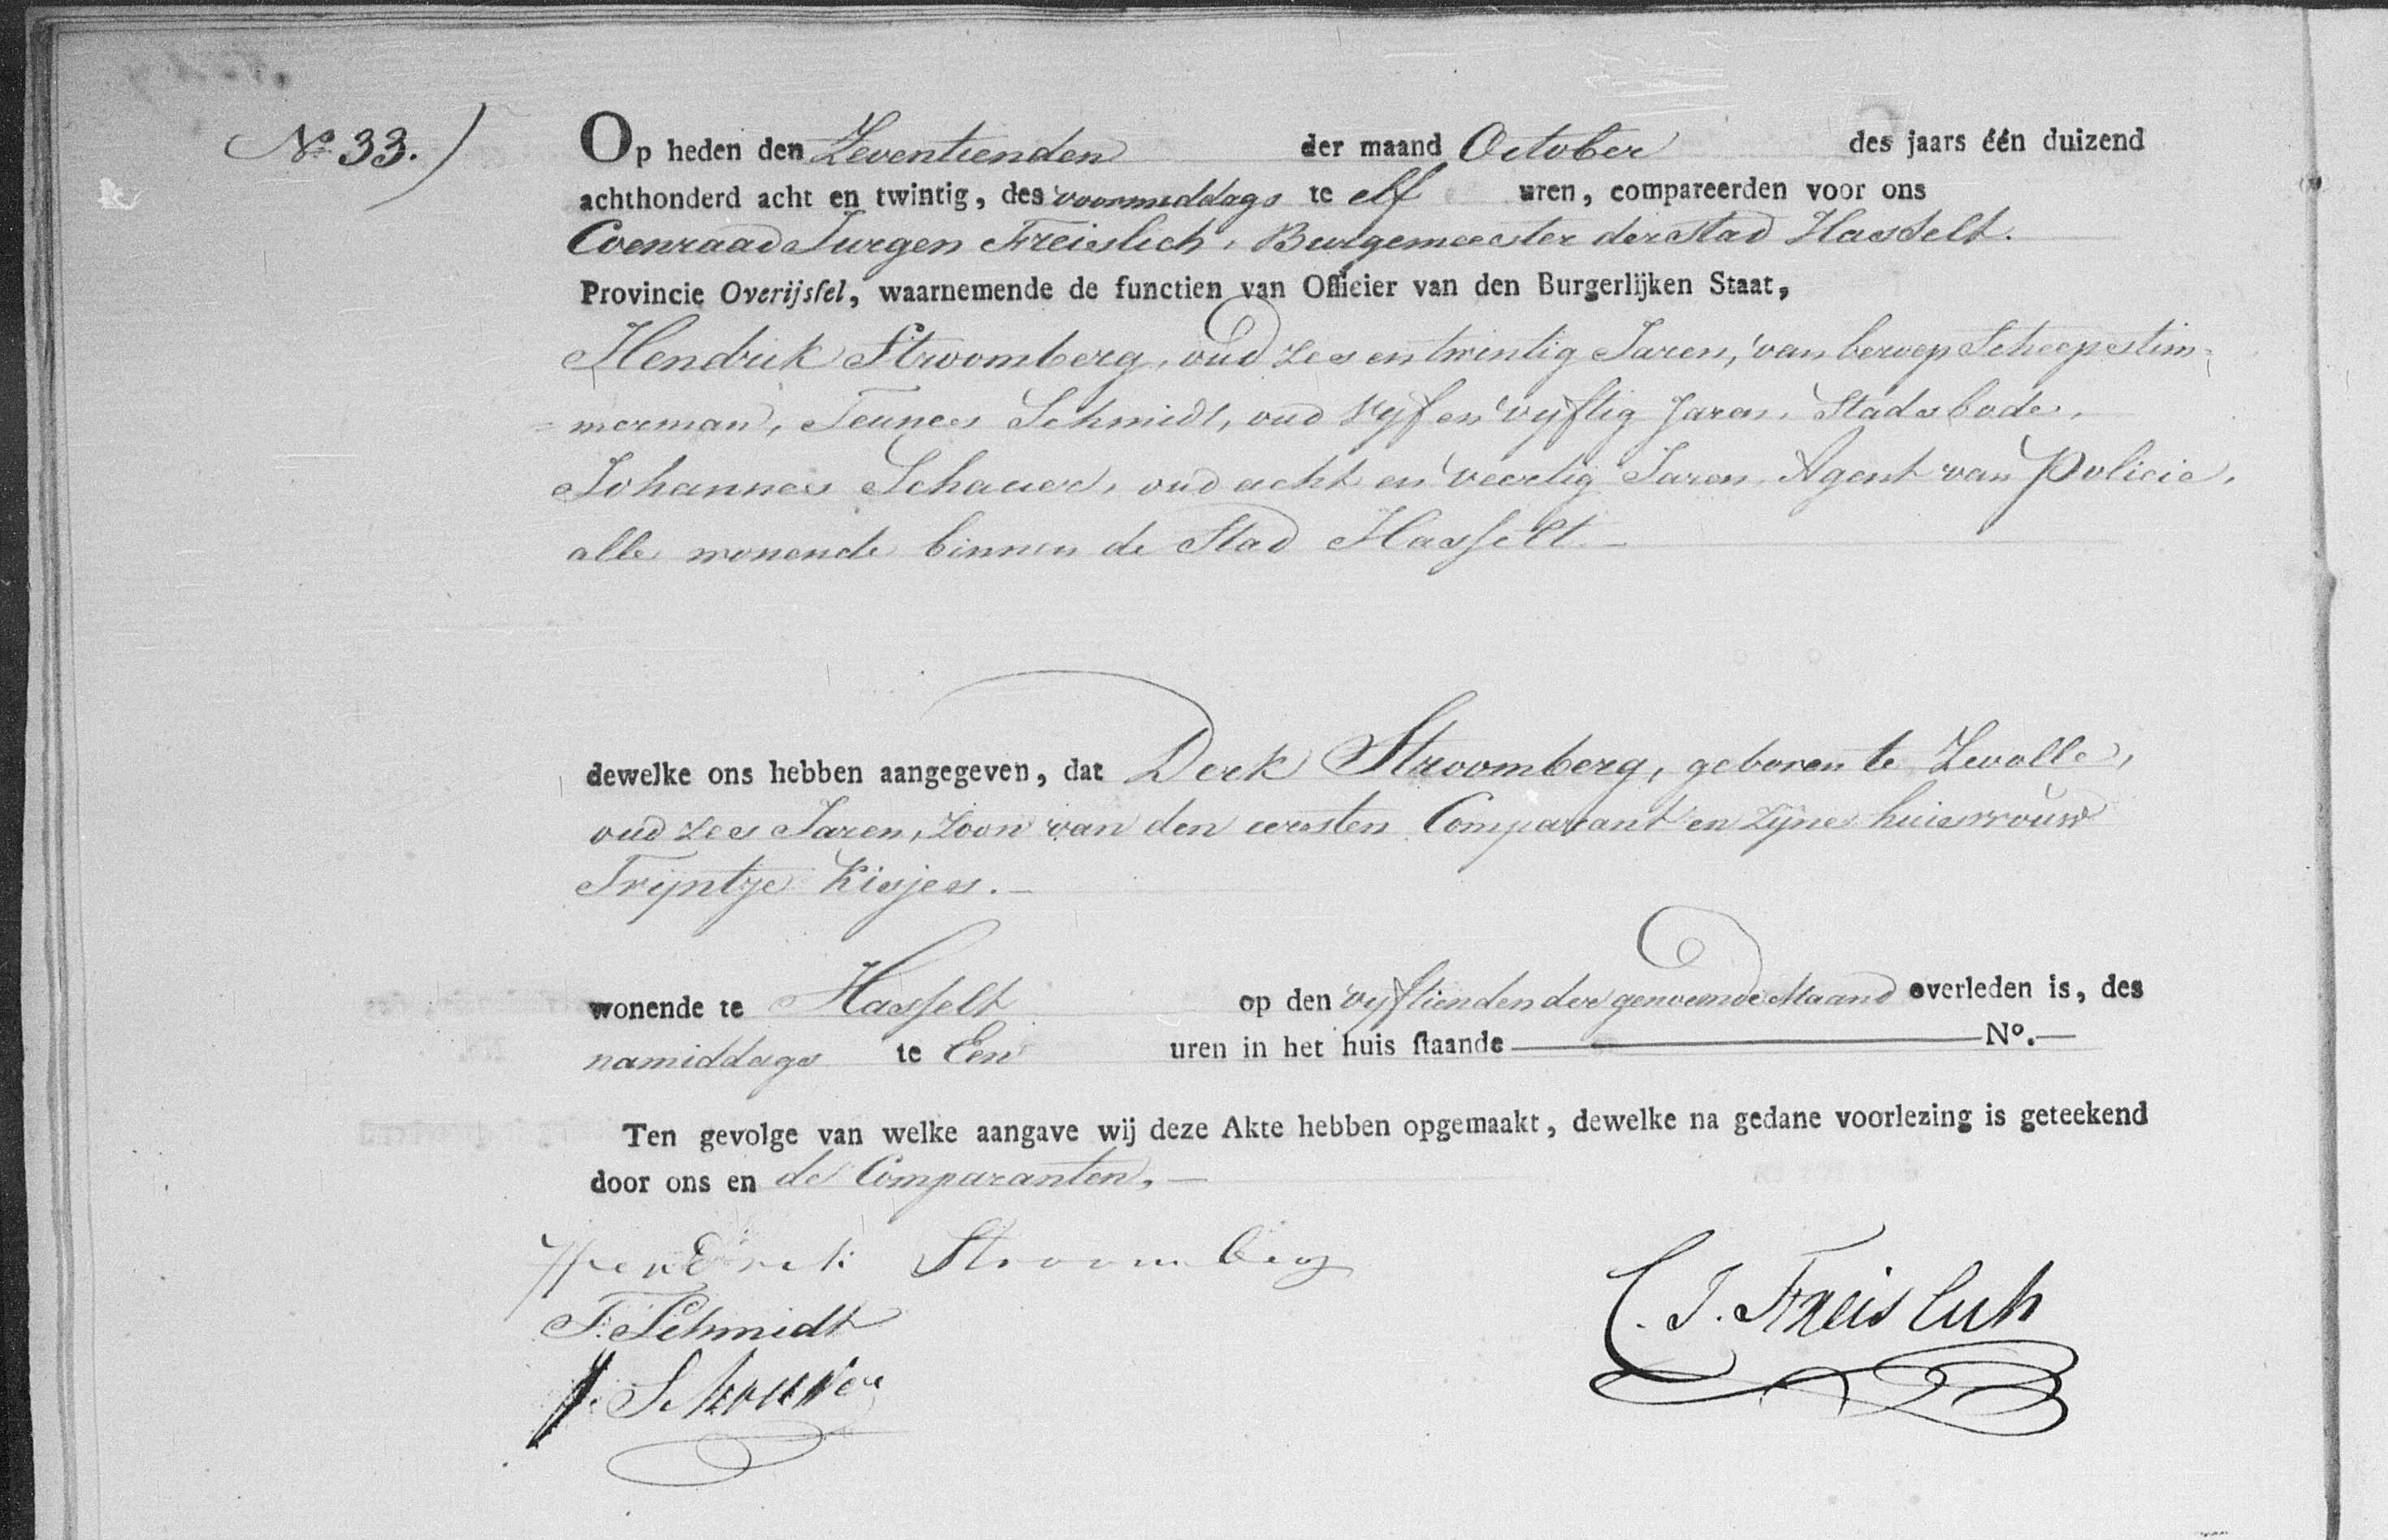 No 33.)
Op heden den Zeventienden der maand October des jaars één duizend
achthonderd acht en twintig, des voormiddags te elf uren, compareerden voor ons
Coenraad Jurgen Freislich, Burgemeester der Stad Hasselt.
Provincie Overijsfel, waarnemende de functien van Officier van den Burgerlijken Staat,
Hendrik Stroomberg, oud zes en twintig Jaren, van beroep Scheepstim=
=merman, Teunes Schmidt, oud vyf en vyftig Jaren, Stadsbode,
Johannes Schauer, oud acht en veertig Jaren Agent van Policie,
alle wonende binnen de Stad Hasselt.
dewelke ons hebben aangegeven, dat Derk Stroomberg, geboren te Zwolle,
oud zes Jaren, zoon van den eersten Comparant en zyne huisvrouw
Tryntje Kisjes.
wonende te Hasselt op den vyftienden der genoemde Maand overleden is, des
namiddags te Een uren in het huis staande No.
Ten gevolge van welke aangave wij deze Akte hebben opgemaakt, dewelke na gedane voorlezing is geteekend
door ons en de Comparanten.
Hendrik Stroomberg
T. Schmidt
C. J. Freislich
J. Schauer